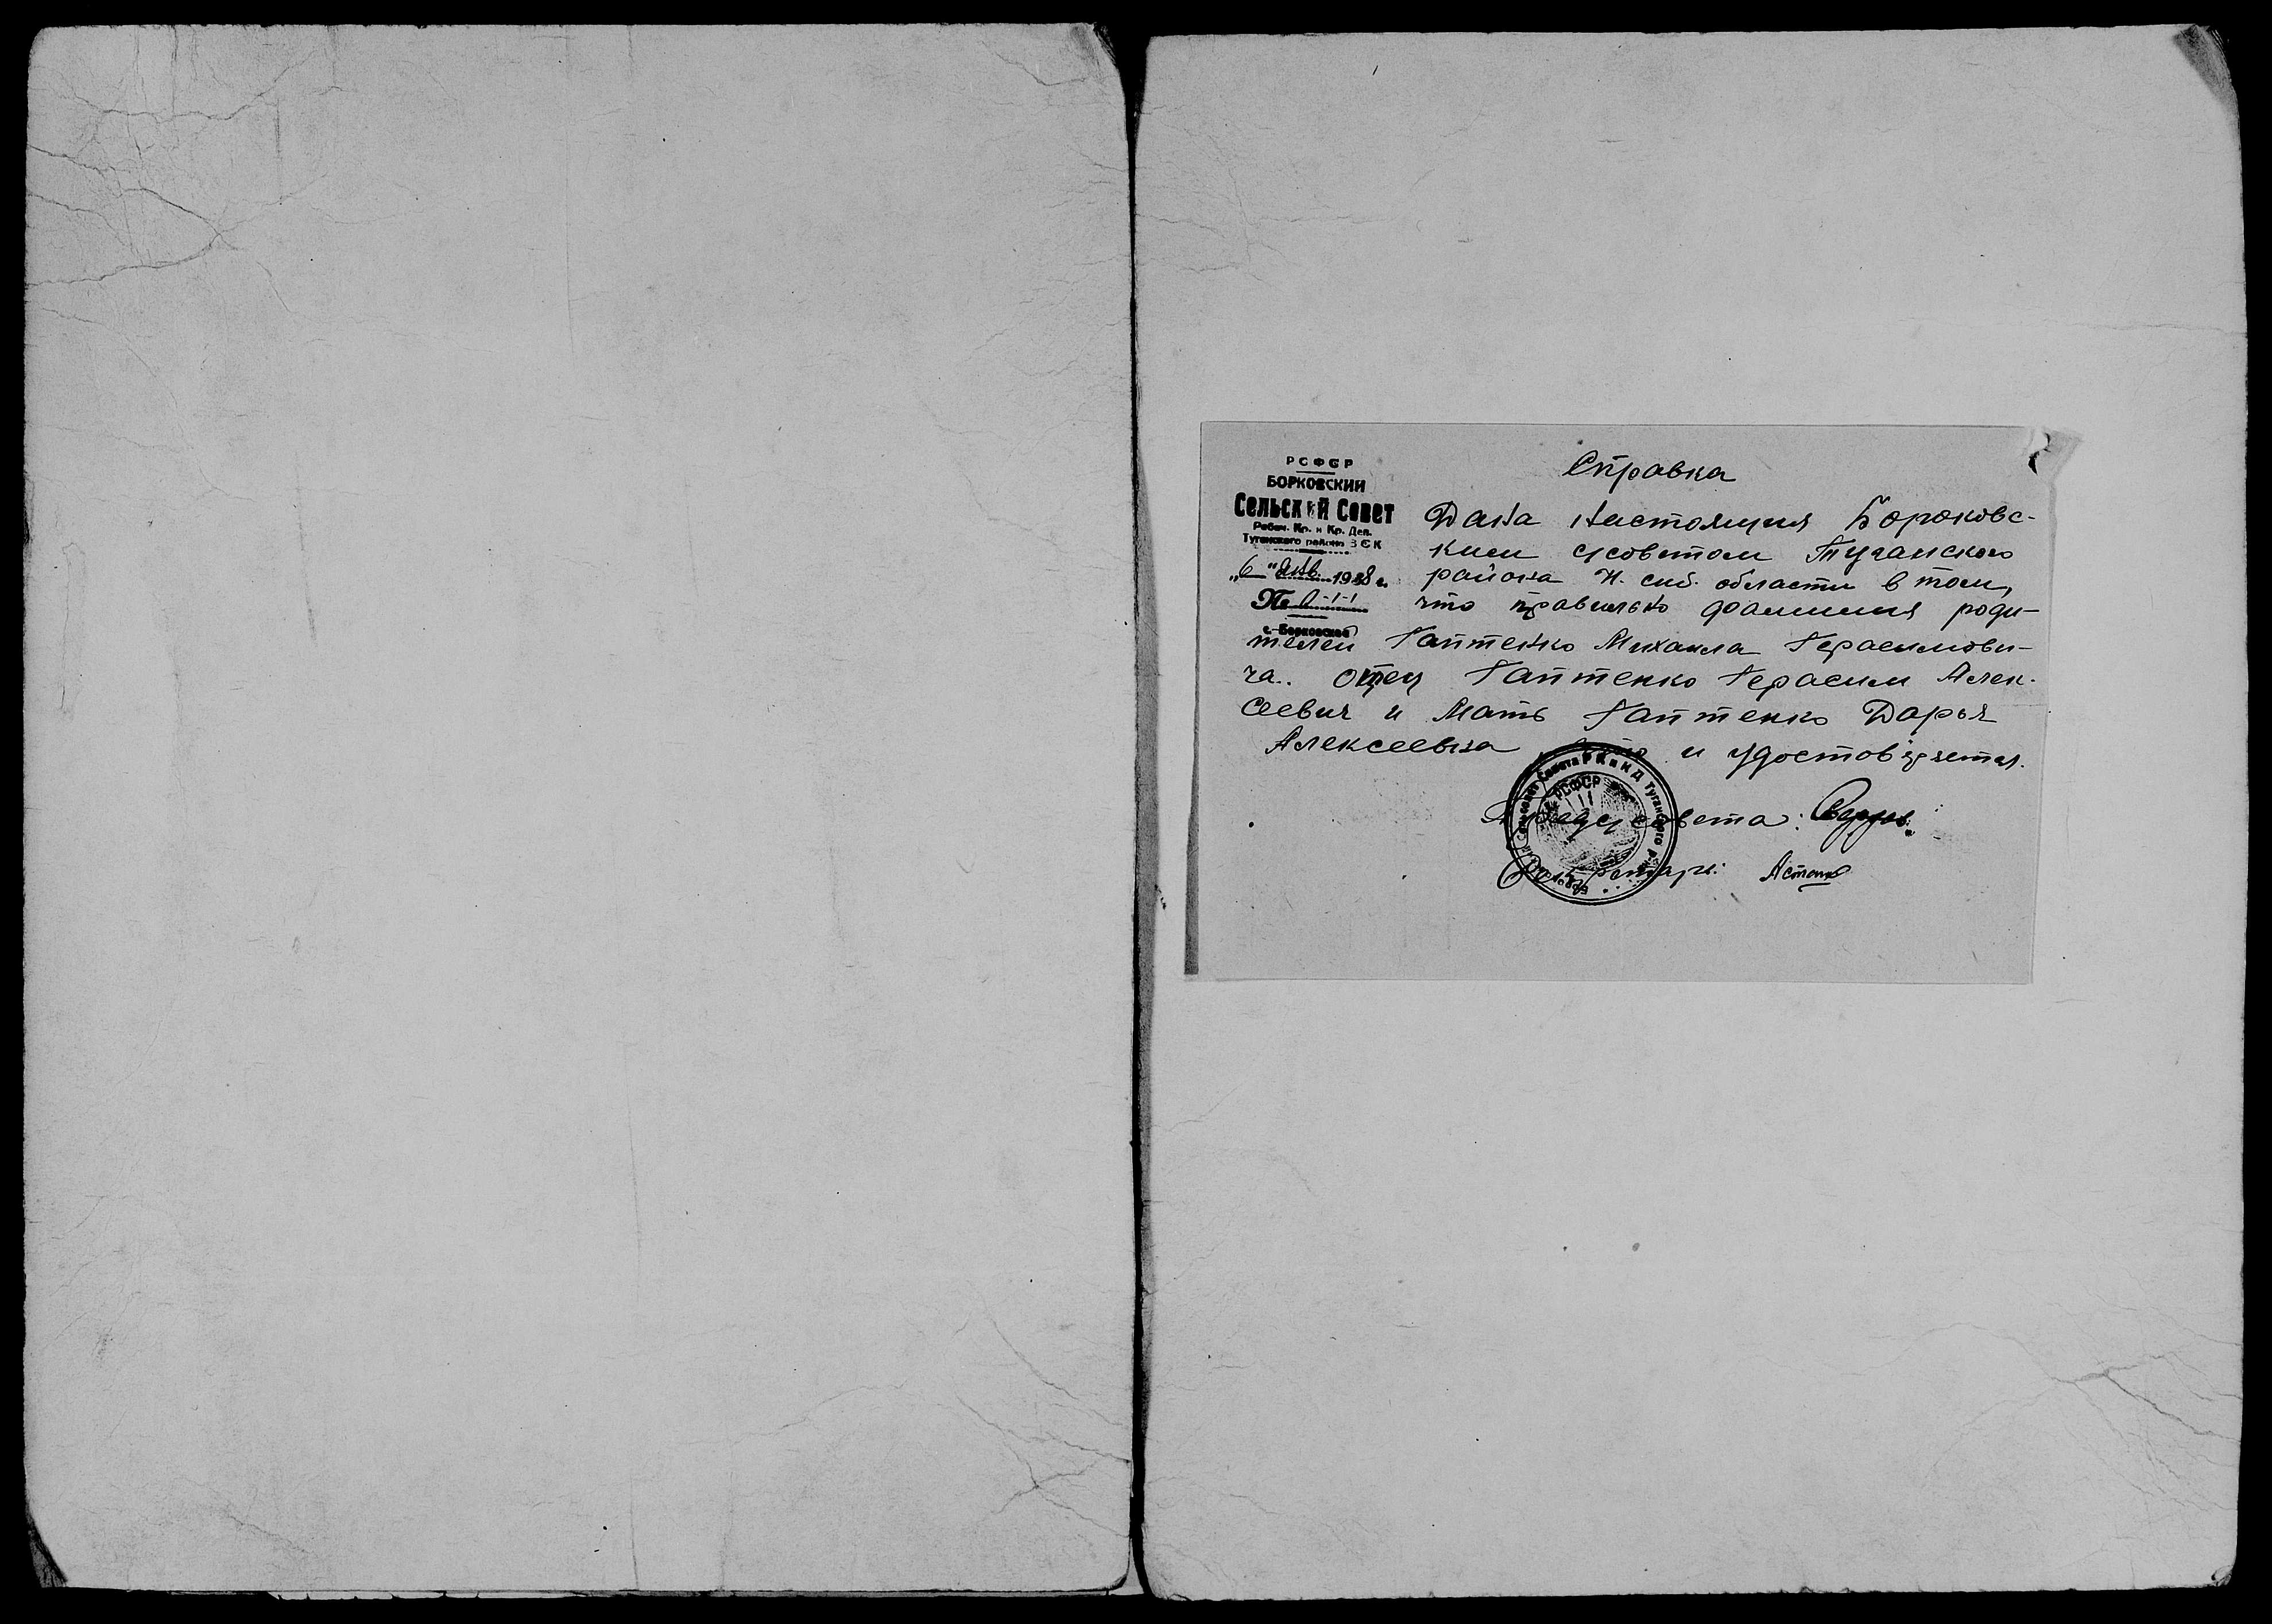 Справка
РСФСР
БОРКОВСКИЙ
Сельский Совет
Рабоч. Кр. и Кр. Деп.
Туганского района З С К
„6“ янв. 1938 г.
№
с. Борковское
Дана настоящия Борковс-
ким с/советом Туганского
района Н. сиб. области в том,
что правильно фамилия роди-
телей Гаптенко Михаила Герасимови-
ча.. отец Гаптенко Герасим Алек-
сеевич и Мать Гаптенко Дарья
Алексеевна что и удостовіряетья.
Пред с/совета:
Секретарь:
Сельского Совета РК и КД Туганского р-на
РСФСР